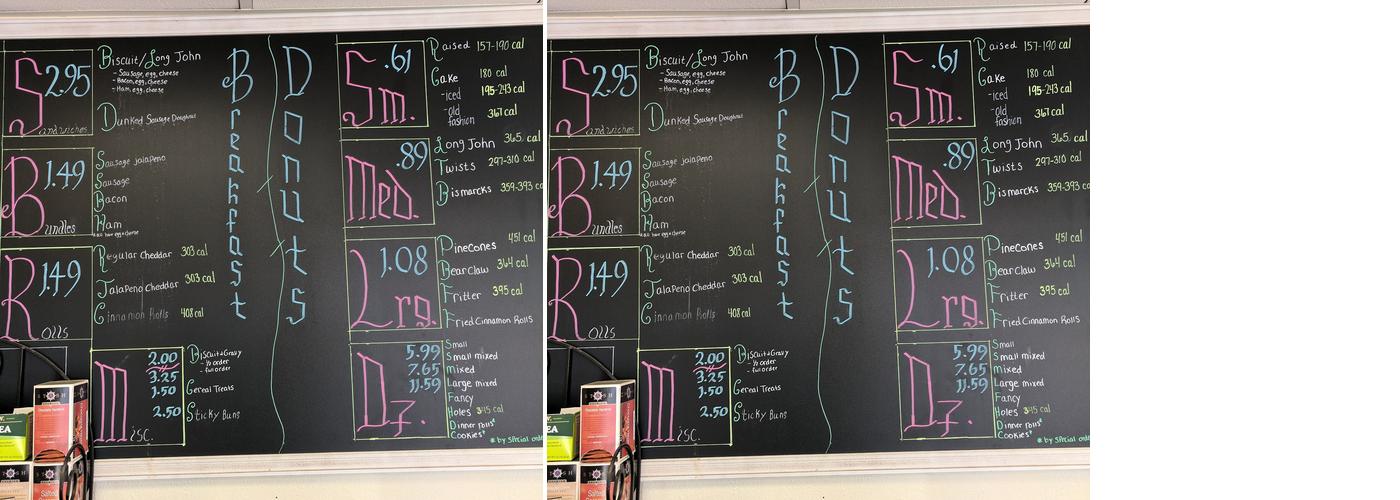 S 2.95
andwiches
Biscuit/Long John
- Sausage, egg, cheese
- Bacon, egg, cheese
- Ham, egg, cheese
Dunked Sausage Doughnut
B 1.49
undles
Sausage jalapeno
Sausage
Bacon
Ham
R 1.49
olls
Regular Cheddar 303 cal
Jalapeno Cheddar 303 cal
Cinnamon Rolls 408 cal
Misc.
2.00
3.25
1.50
2.50
Biscuit & Gravy
- ½ order
- full order
Cereal Treats
Sticky Buns
Breakfast
Donuts
Sm. .61
Raised 157-190 cal
Cake 180 cal
- iced 195-243 cal
- old fashion 367 cal
Med. .89
Long John 365 cal
Twists 297-310 cal
Bismarcks 359-393 ca
Lrg. 1.08
Pinecones 451 cal
Bear Claw 364 cal
Fritter 395 cal
Fried Cinnamon Rolls
Dz.
5.99
7.65
11.59
Small
Small mixed
mixed
Large mixed
Fancy
Holes 345 cal
Dinner rolls*
Cookies*
* by special orde
STASH
S 2.95
andwiches
Biscuit/Long John
- Sausage, egg, cheese
- Bacon, egg, cheese
- Ham, egg, cheese
Dunked Sausage Doughnut
B 1.49
undles
Sausage jalapeno
Sausage
Bacon
Ham
R 1.49
olls
Regular Cheddar 303 cal
Jalapeno Cheddar 303 cal
Cinnamon Rolls 408 cal
Misc.
2.00
3.25
1.50
2.50
Biscuit & Gravy
- ½ order
- full order
Cereal Treats
Sticky Buns
Breakfast
Donuts
Sm. .61
Raised 157-190 cal
Cake 180 cal
- iced 195-243 cal
- old fashion 367 cal
Med. .89
Long John 365 cal
Twists 297-310 cal
Bismarcks 359-393 ca
Lrg. 1.08
Pinecones 451 cal
Bear Claw 364 cal
Fritter 395 cal
Fried Cinnamon Rolls
Dz.
5.99
7.65
11.59
Small
Small mixed
mixed
Large mixed
Fancy
Holes 345 cal
Dinner rolls*
Cookies*
* by special orde
STASH